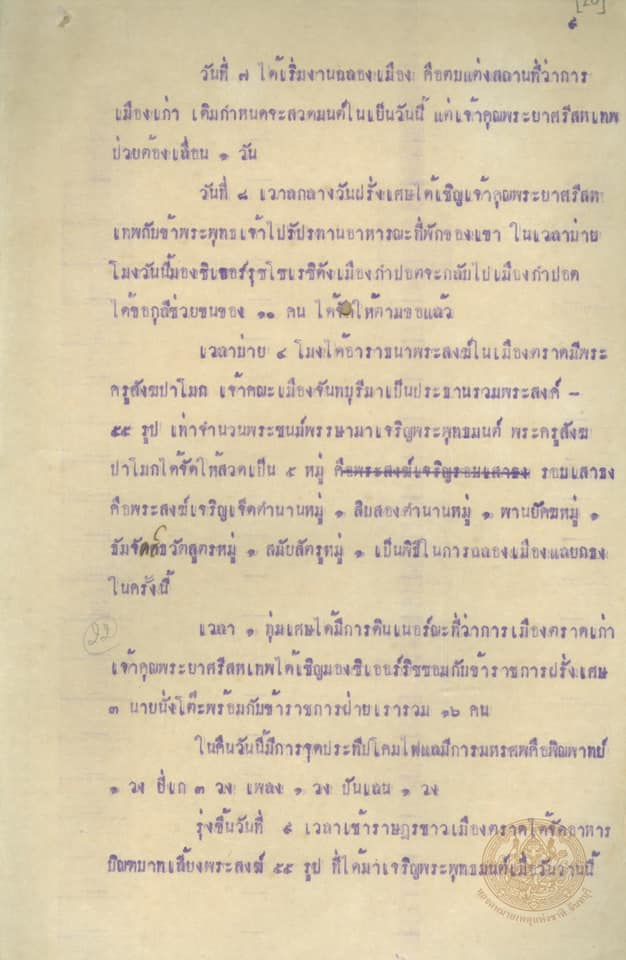 [20]
๙
วันที่ ๗ ได้เริ่มงานฉลองเมือง คือตบแต่งสถานที่ว่าการ
เมืองเก่า เดิมกำหนดจะสวดมนต์ในเย็นวันนี้ แต่เจ้าคุณพระยาศรีสหเทพ
ป่วยต้องเลื่อน ๑ วัน
วันที่ ๘ เวาลกลางวันฝรั่งเศษได้เชิญเจ้าคุณพระยาศรีสห
เทพกับข้าพระพุทธเจ้าไปรับประทานอาหารณะที่พักของเขา ในเวลาบ่าย
โมงวันนี้มองซิเออร์รุซโซเรซิดังเมืองกำปอดจะกลับไปเมืองกำปอด
ได้ขอกุลีช่วยขนของ ๑๐ คน ได้จัดให้ตามขอแล้ว
เวลาบ่าย ๔ โมงได้อาราธนาพระสงฆ์ในเมืองตราดมีพระ
ครูสังฆปาโมก เจ้าคณะเมืองจันทบุรีมาเป็นประธานรวมพระสงค์ -
๕๕ รูป เท่าจำนวนพระชนม์พรรษามาเจริญพระพุทธมนต์ พระครูสังฆ
ปาโมกได้จัดให้สวดเป็น ๕ หมู่ คือพระสงฆ์เจริญรอมเสาธง รอมเสาธง
คือพระสงฆ์เจริญเจ็ดตำนานหมู่ ๑ สิบสองตำนานหมู่ ๑ พานยักฆหมู่ ๑
ธัมจักร์วัตสูตรหมู่ ๑ สมัยสัตรูหมู่ ๑ เป็นพิธีในการฉลองเมืองแลยกธง
ในครั้งนี้
๒๒
เวลา ๑ ทุ่มเศษได้มีการดินเนอร์ณะที่ว่าการเมืองตราดเก่า
เจ้าคุณพระยาศรีสหเทพได้เชิญมองซิเออร์ริซซอมกับข้าราชการฝรั่งเศษ
๓ นายนั่งโต๊ะพร้อมกับข้าราชการฝ่ายเรารวม ๑๖ คน
ในคืนวันนี้มีการจุดประทีปโคมไฟแลมีการมหรศพคือพิณพาทย์
๑ วง ยี่เก ๓ วง เพลง ๑ วง บันเลน ๑ วง
รุ่งขึ้นวันที่ ๙ เวลาเช้าราษฎรชาวเมืองตราดได้จัดอาหาร
บิณฑบาทเลี้ยงพระสงฆ์ ๕๕ รูป ที่ได้มาเจริญพระพุทธมนต์เมื่อวันวานนี้
หอจดหมายเหตุแห่งชาติ จันทบุรี